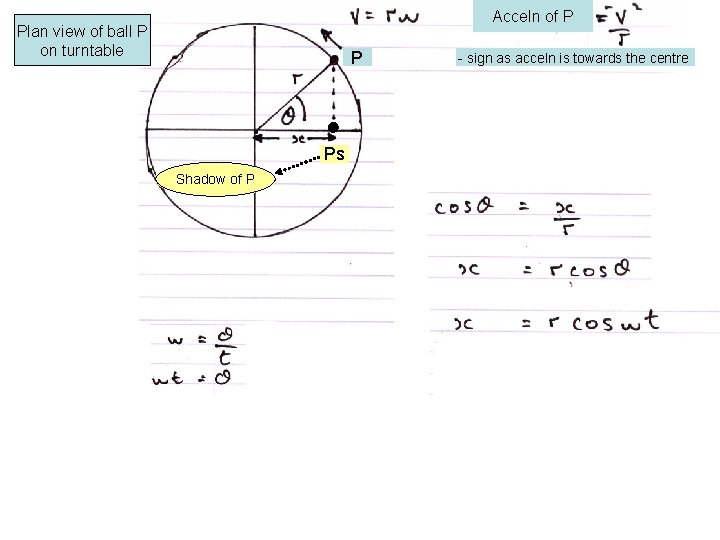 Plan view of ball P
on turntable
V = rw
Acceln of P = -V²/r
- sign as acceln is towards the centre
P
r
θ
x
Ps
Shadow of P
cosθ = x/r
x = r cosθ
x = r cos wt
w = θ/t
wt = θ